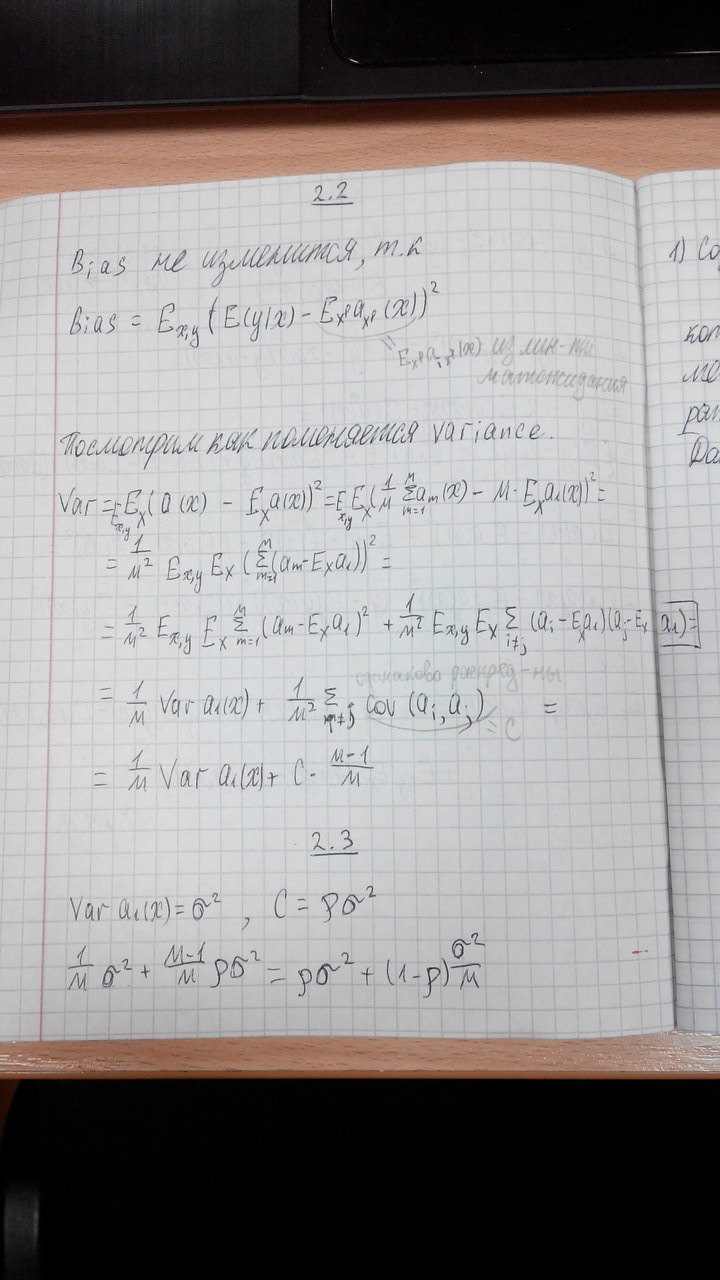 2.2
Bias не изменится, т.к
Bias = E_{x,y} (E(y|x) − E_{X^ℓ} a_{X^ℓ}(x))²
= E_{X^ℓ} a_{i X^ℓ}(x) из лин-ти
матожидания
Посмотрим как поменяется variance.
Var = E_{x,y} E_X (a(x) − E_X a(x))² = E_{x,y} E_X (1/M Σ_{m=1}^M a_m(x) − M · E_X a_1(x))² =
= 1/M² E_{x,y} E_X (Σ_{m=1}^M (a_m − E_X a_1))² =
= 1/M² E_{x,y} E_X Σ_{m=1}^M (a_m − E_X a_1)² + 1/M² E_{x,y} E_X Σ_{i≠j} (a_i − E_X a_1)(a_j − E_X a_1) =
одинаково распред-ны
= 1/M Var a_1(x) + 1/M² Σ_{≠j} cov (a_i, a_j) =
= C
= 1/M Var a_1(x) + C · M−1/M
2.3
Var a_1(x) = σ² , C = ρσ²
1/M σ² + M−1/M ρσ² = ρσ² + (1−ρ) σ²/M
1)